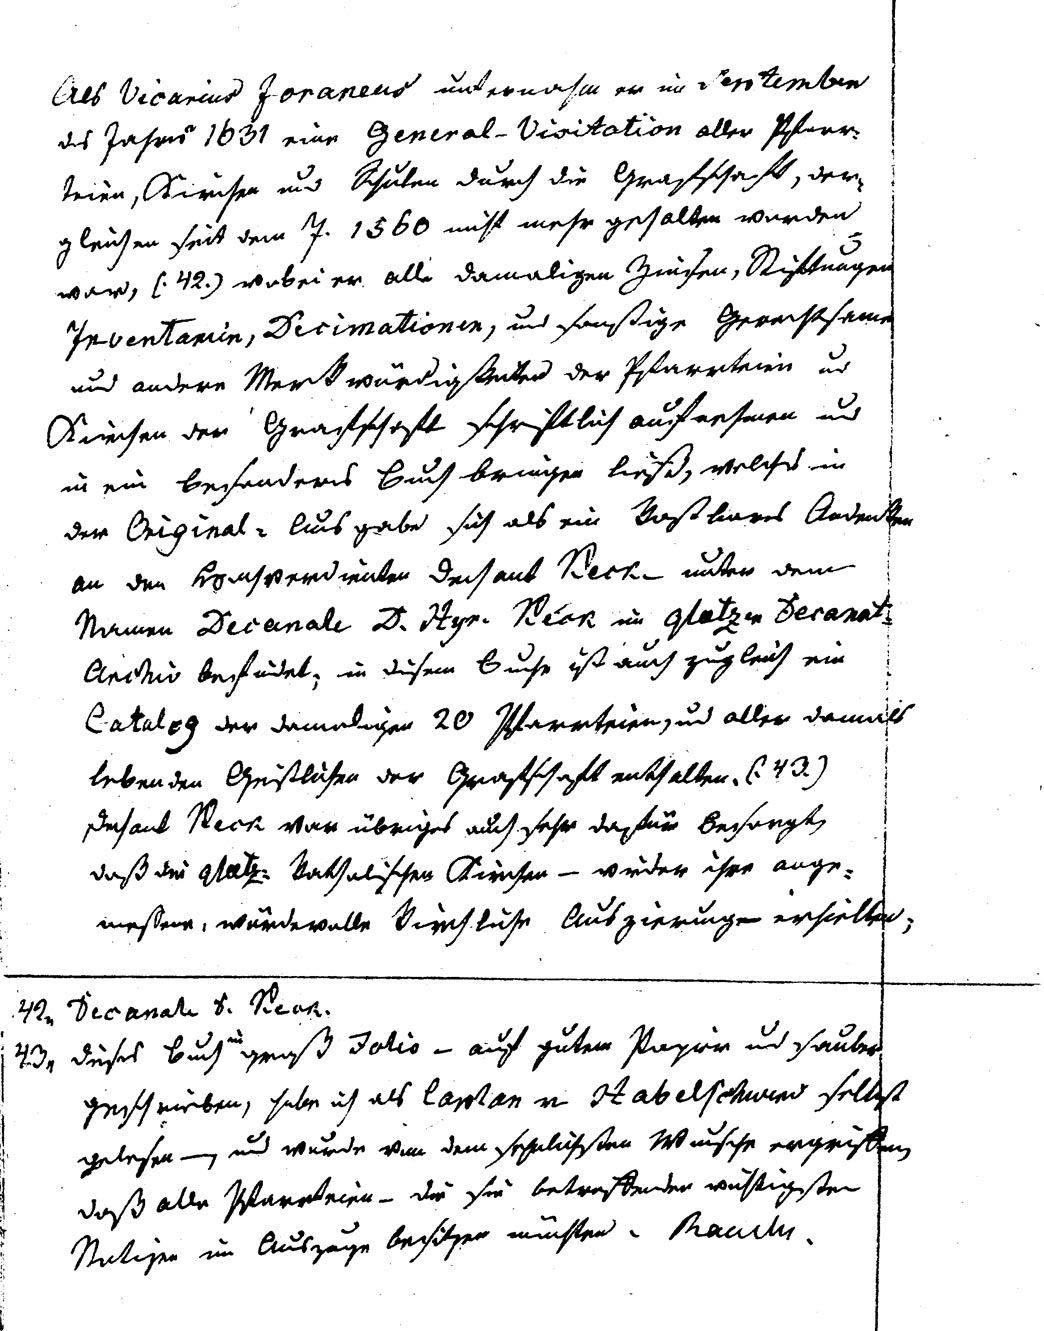 Als Vicarius Foraneus unternahm er im September
des Jahres 1631 eine General-Visitation aller Pfarr-
teien, Kirchen und Schulen durch die Grafschaft, der-
gleichen seit dem J. 1560 nicht mehr gehalten worden
war, (: 42.) wobei er alle damaligen Zinsen, Stiftungen
Inventarien, Decimationen, und sonstige Gerechtsame
und andere Merkwürdigkeiten der Pfarrteien und
Kirchen der Grafschaft schriftlich aufnehmen und
in ein besonderes Buch bringen ließ, welches in
der Original-Ausgabe sich als ein kostbares Andenken
an den hochverdienten Dechant Keck – unter dem
Namen Decanale D. Hyr. Keck im glatzer Decanat-
Archiv befindet; in diesem Buche ist auch zugleich ein
Catalog der damaligen 20 Pfarrteien, und aller damals
lebenden Geistlichen der Grafschaft enthalten. (: 43.)
Dechant Keck war übriges auch sehr dafür besorgt,
daß die glatz- katholischen Kirchen – wieder ihre ange-
messene, würdevolle kirchliche Auszierungen erhielten;
42, Decanale D. Keck.
43, Dieses Buch in groß Folio – auf gutem Papier und sauber
geschrieben, habe ich als Caplan in Habelschwerd selbst
gelesen –, und wurde von dem sehnlichsten Wunsche ergriffen,
daß alle Pfarrteien – die sie betreffenden wichtigsten
Notizen im Auszuge besitzen möchten.